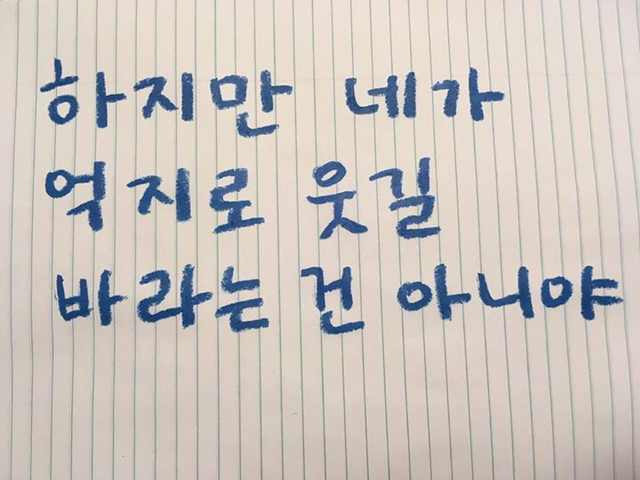 하지만 네가
억지로 웃길
바라는 건 아니야